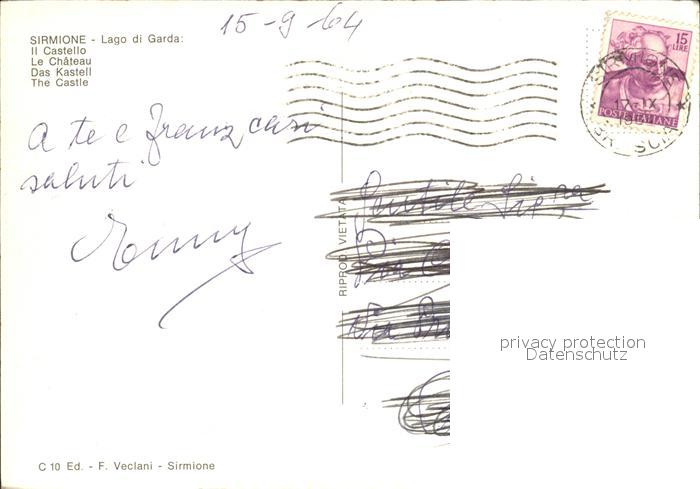 15-9-64
SIRMIONE - Lago di Garda:
Il Castello
Le Château
Das Kastell
The Castle
15
LIRE
17-IX
POSTE ITALIANE
A te e Franz cari
saluti
Gentile Sig.ra
Via
RIPROD VIETATA
privacy protection
Datenschutz
C 10 Ed. - F. Veclani - Sirmione